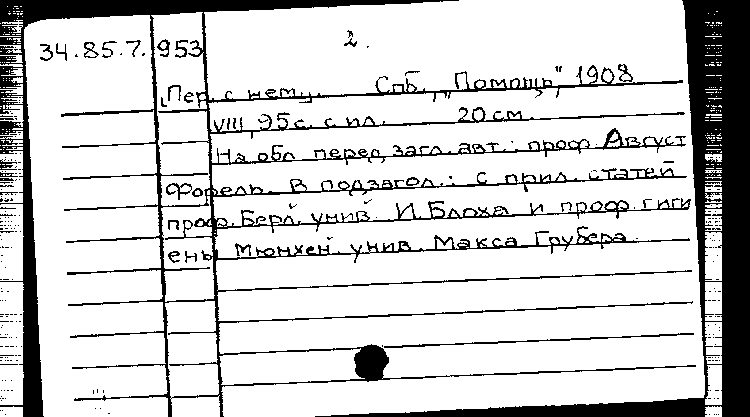 34.85.7. 953 2.
Пер. с нем. Спб., „Помощь", 1908
VIII, 95 с. с ил. 20 см.
На обл. перед загл. авт.: проф. Август
Форель. В подзагол.: с прил. статей
проф. Берл. унив. И. Блоха и проф. гиги
ены Мюнхен. унив. Макса Грубера.